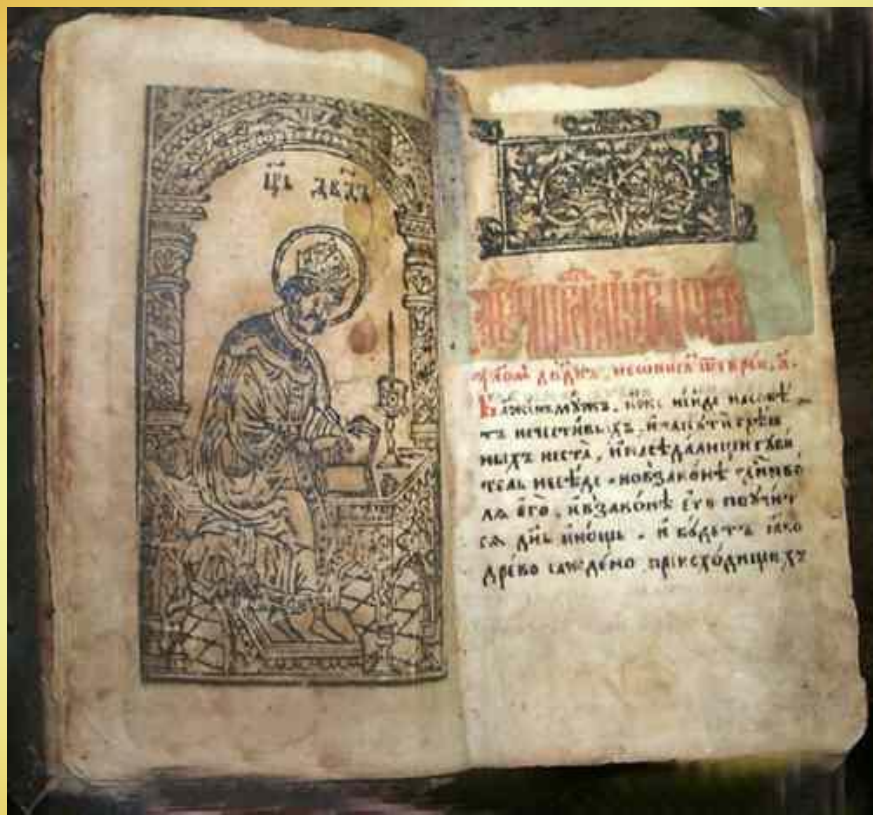 цр҃ь дв҃дъ
Бл҃женъ мꙋжъ, иже не иде на совѣ
тъ нечестивыхъ, и на пꙋти грѣш
ныхъ не ста, и на сѣдалищи гꙋби
тель не сѣде. но в законѣ гд҃ни во
лѧ его, и в законѣ его поꙋчит
сѧ дн҃ь и нощь. и бꙋдетъ ꙗко
древо саждено при исходищихъ